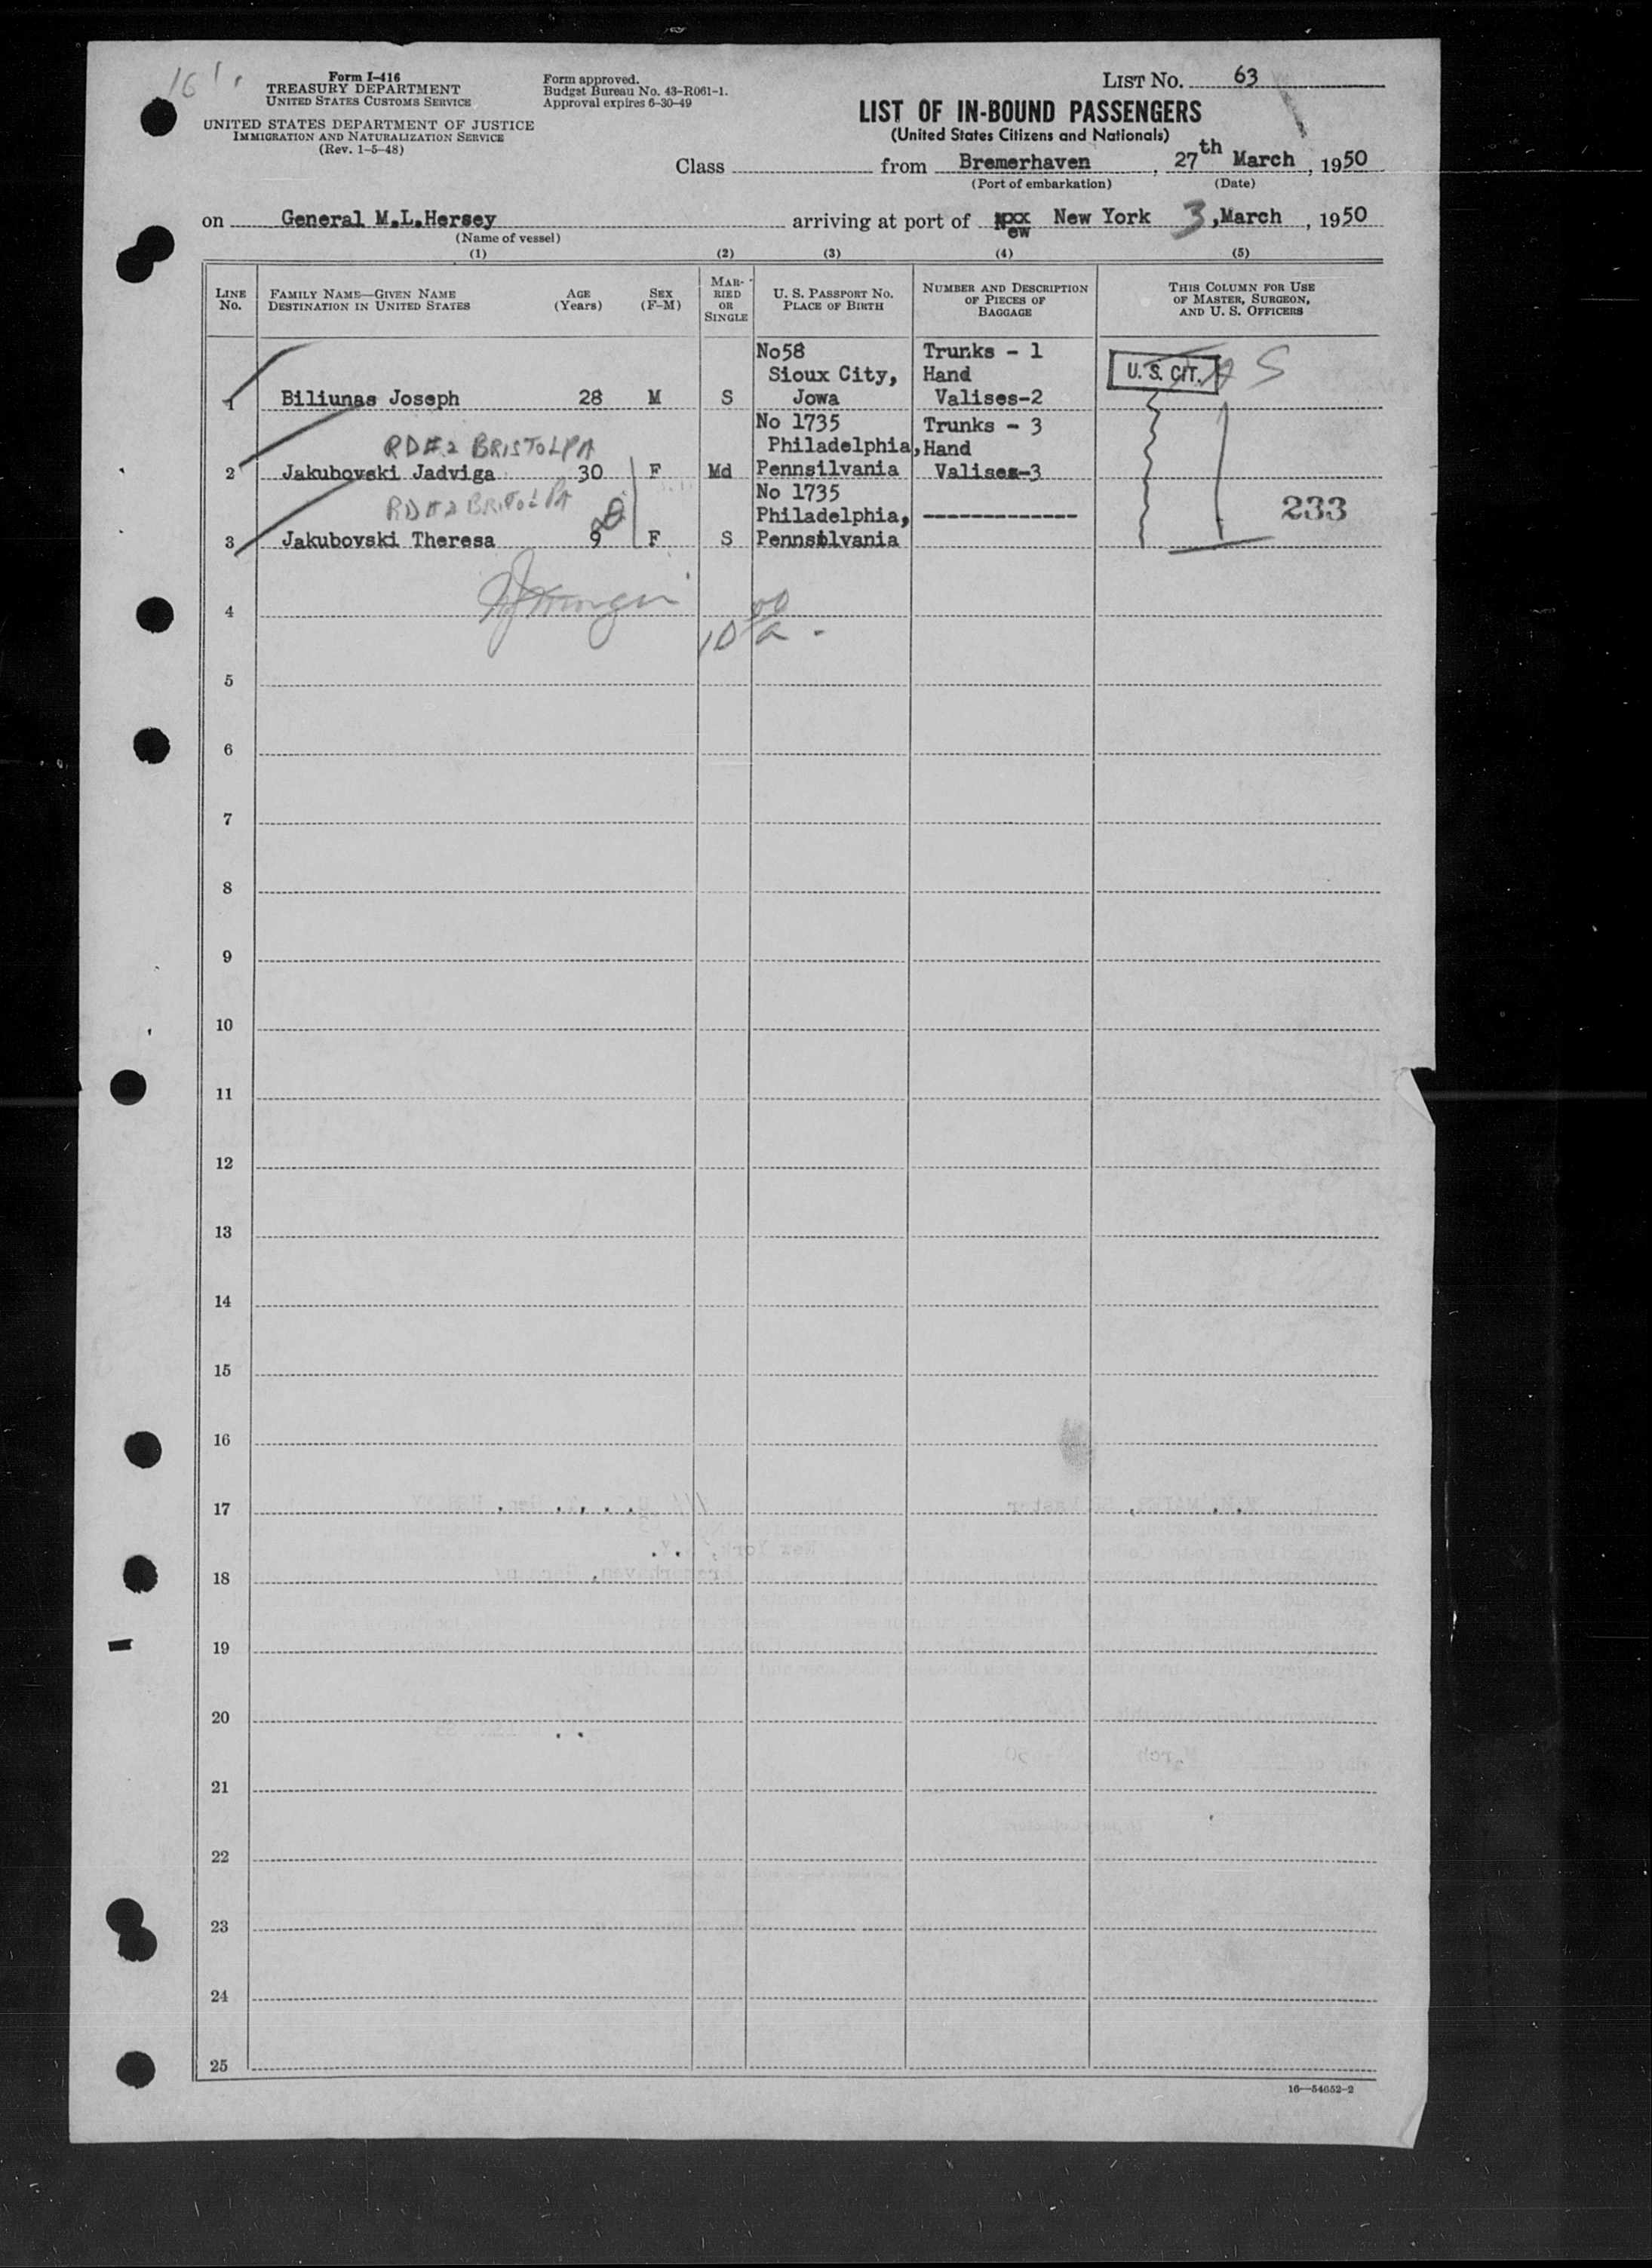 161.
Form I-416
TREASURY DEPARTMENT
UNITED STATES CUSTOMS SERVICE
UNITED STATES DEPARTMENT OF JUSTICE
IMMIGRATION AND NATURALIZATION SERVICE
(Rev. 1-5-48)
Form approved.
Budget Bureau No. 43-R061-1.
Approval expires 6-30-49
LIST NO. 63
LIST OF IN-BOUND PASSENGERS
(United States Citizens and Nationals)
Class from Bremerhaven, 27th March, 1950
(Port of embarkation) (Date)
on General M.L.Hersey arriving at port of New York 3,March, 1950
(Name of vessel)
(1) (2) (3) (4) (5)
LINE NO.
FAMILY NAME—GIVEN NAME
DESTINATION IN UNITED STATES
AGE (Years)
SEX (F-M)
MARRIED OR SINGLE
U. S. PASSPORT NO.
PLACE OF BIRTH
NUMBER AND DESCRIPTION
OF PIECES OF
BAGGAGE
THIS COLUMN FOR USE
OF MASTER, SURGEON,
AND U. S. OFFICERS
No58 Trunks - 1
Sioux City, Hand U. S. CIT.
1 Biliunas Joseph 28 M S Jowa Valises-2
No 1735 Trunks - 3
RD#2 BRISTOL PA Philadelphia, Hand
2 Jakubovski Jadviga 30 F Md Pennsilvania Valises-3
No 1735
RD#2 BRISTOL PA Philadelphia, ------------- 233
3 Jakubovski Theresa 9 F S Pennsilvania
4
5
6
7
8
9
10
11
12
13
14
15
16
17
18
19
20
21
22
23
24
25
16—54652-2